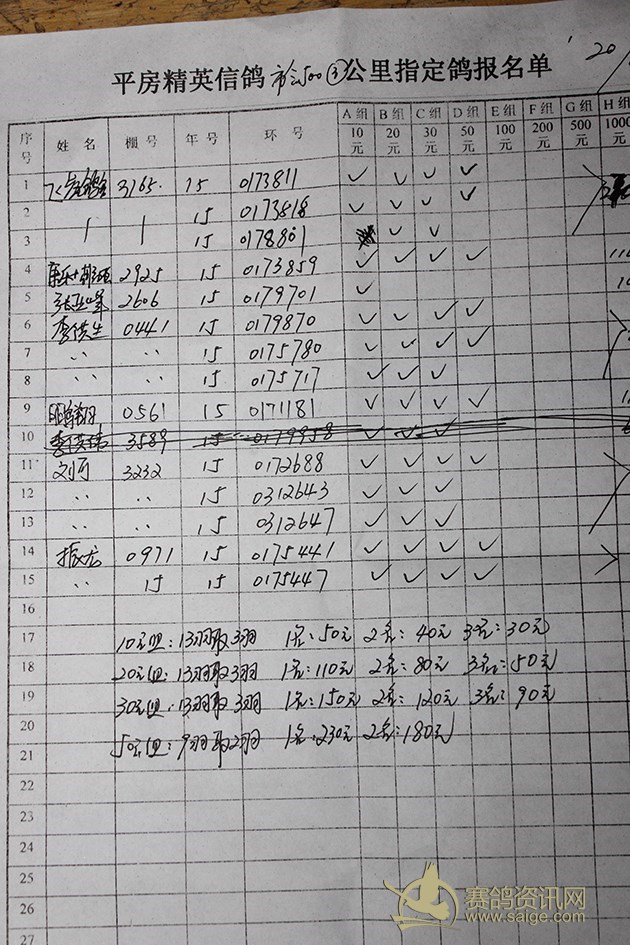 20
平房精英信鸽 500 ③ 公里指定鸽报名单
序号 姓名 棚号 年号 环号 A组10元 B组20元 C组30元 D组50元 E组100元 F组200元 G组500元 H组1000
1 3165 15 0173811 ✓ ✓ ✓ ✓
2 15 0173818 ✓ ✓ ✓ ✓
3 15 0178801 ✓ ✓
4 2925 15 0173859 ✓ ✓ ✓ ✓
5 2606 15 0179701 ✓
6 李洪生 0441 15 0179870 ✓ ✓ ✓ ✓
7 〃 〃 15 0175780 ✓ ✓ ✓ ✓
8 〃 〃 15 0175717 ✓ ✓ ✓
9 鹏翔 0561 15 0171181 ✓ ✓ ✓ ✓
10 3589 15 0179958 ✓ ✓ ✓
11 3232 15 0172688 ✓ ✓ ✓ ✓
12 〃 〃 15 0312643 ✓ ✓ ✓
13 〃 〃 15 0312647 ✓ ✓ ✓
14 振龙 0971 15 0175441 ✓ ✓ ✓ ✓
15 〃 15 15 0175447 ✓ ✓ ✓ ✓
16
17 10元组:13羽取3羽 1名:50元 2名:40元 3名:30元
18 20元组:13羽取3羽 1名:110元 2名:80元 3名:50元
19 30元组:13羽取3羽 1名:150元 2名:120元 3名:90元
20
21 50元组:9羽取2羽 1名:230元 2名:180元
22
23
24
25
26
27
赛鸽资讯网
www.saige.com